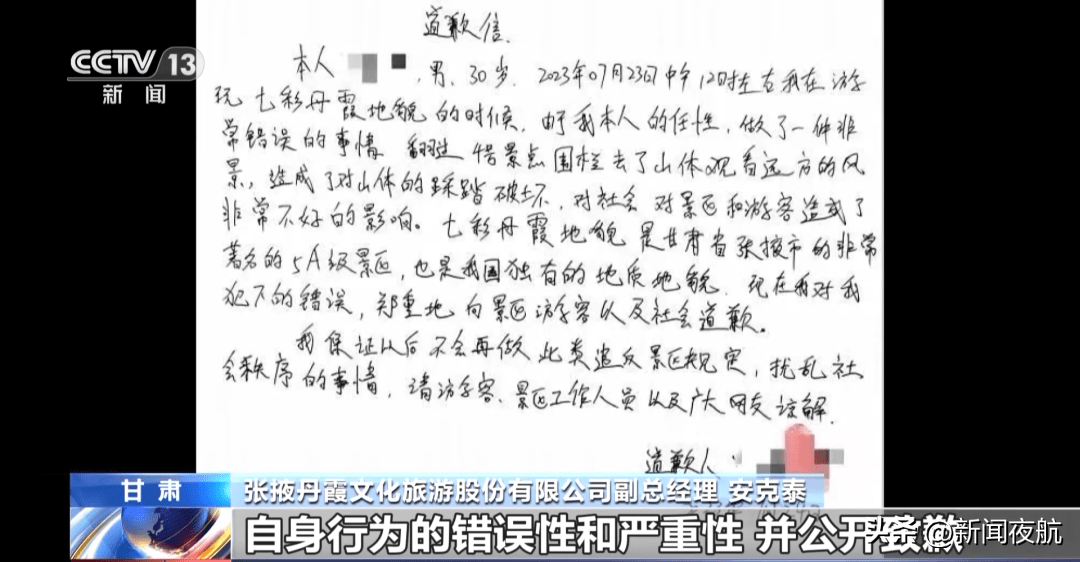 CCTV 13
新闻
道歉信
本人 ,男、30岁. 2023年07月23日中午12时左右我在游
玩七彩丹霞地貌的时候,由于我本人的任性,做了一件非
常错误的事情 翻越 景点围栏去了山体观看远方的风
景,造成了对山体的踩踏破坏,对社会 对景区和游客造成了
非常不好的影响。七彩丹霞地貌是甘肃省张掖市的非常
著名的5A级景区,也是我国独有的地质地貌.现在我对我
犯下的错误,郑重地向景区游客以及社会道歉。
我保证以后不会再做此类违反景区规定,扰乱社
会秩序的事情,请游客、景区工作人员以及广大网友谅解.
道歉人:
甘肃 张掖丹霞文化旅游股份有限公司副总经理 安克泰
自身行为的错误性和严重性 并公开致歉
头条 @新闻夜航